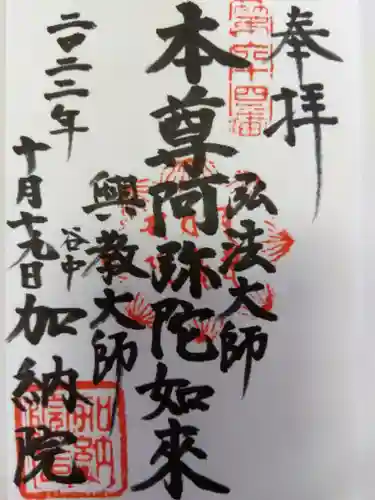 奉拝
第六十四番
弘法大師
本尊阿弥陀如來
興教大師
二〇二二年
十月十九日
谷中
加納院
加納院印